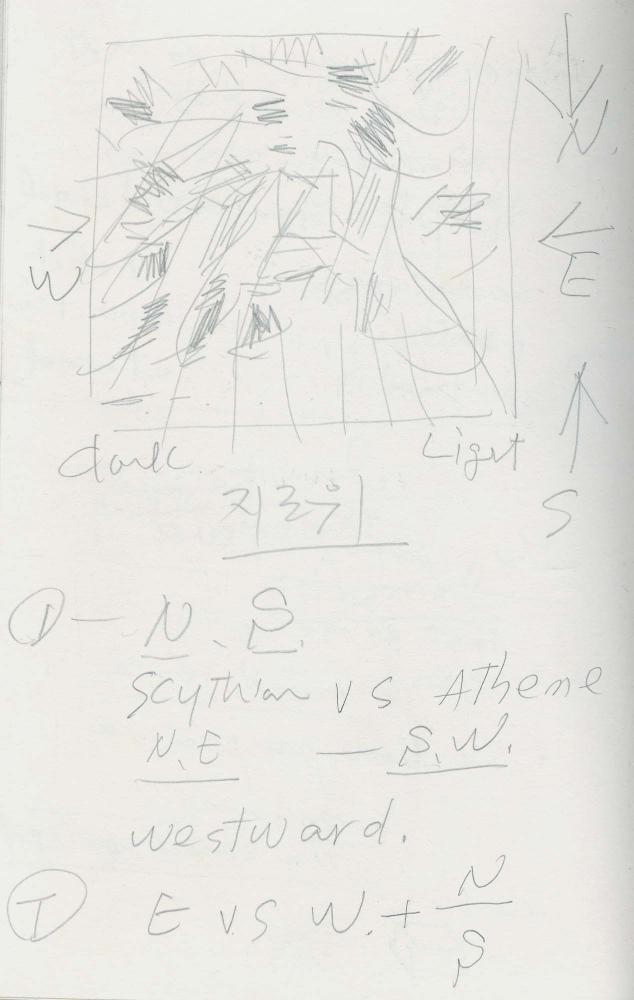 N.
W
E
dark. Light
S
지로위
① — N. S.
Scythian VS Athene
N.E — S.W.
westward.
I E VS W. + N
S